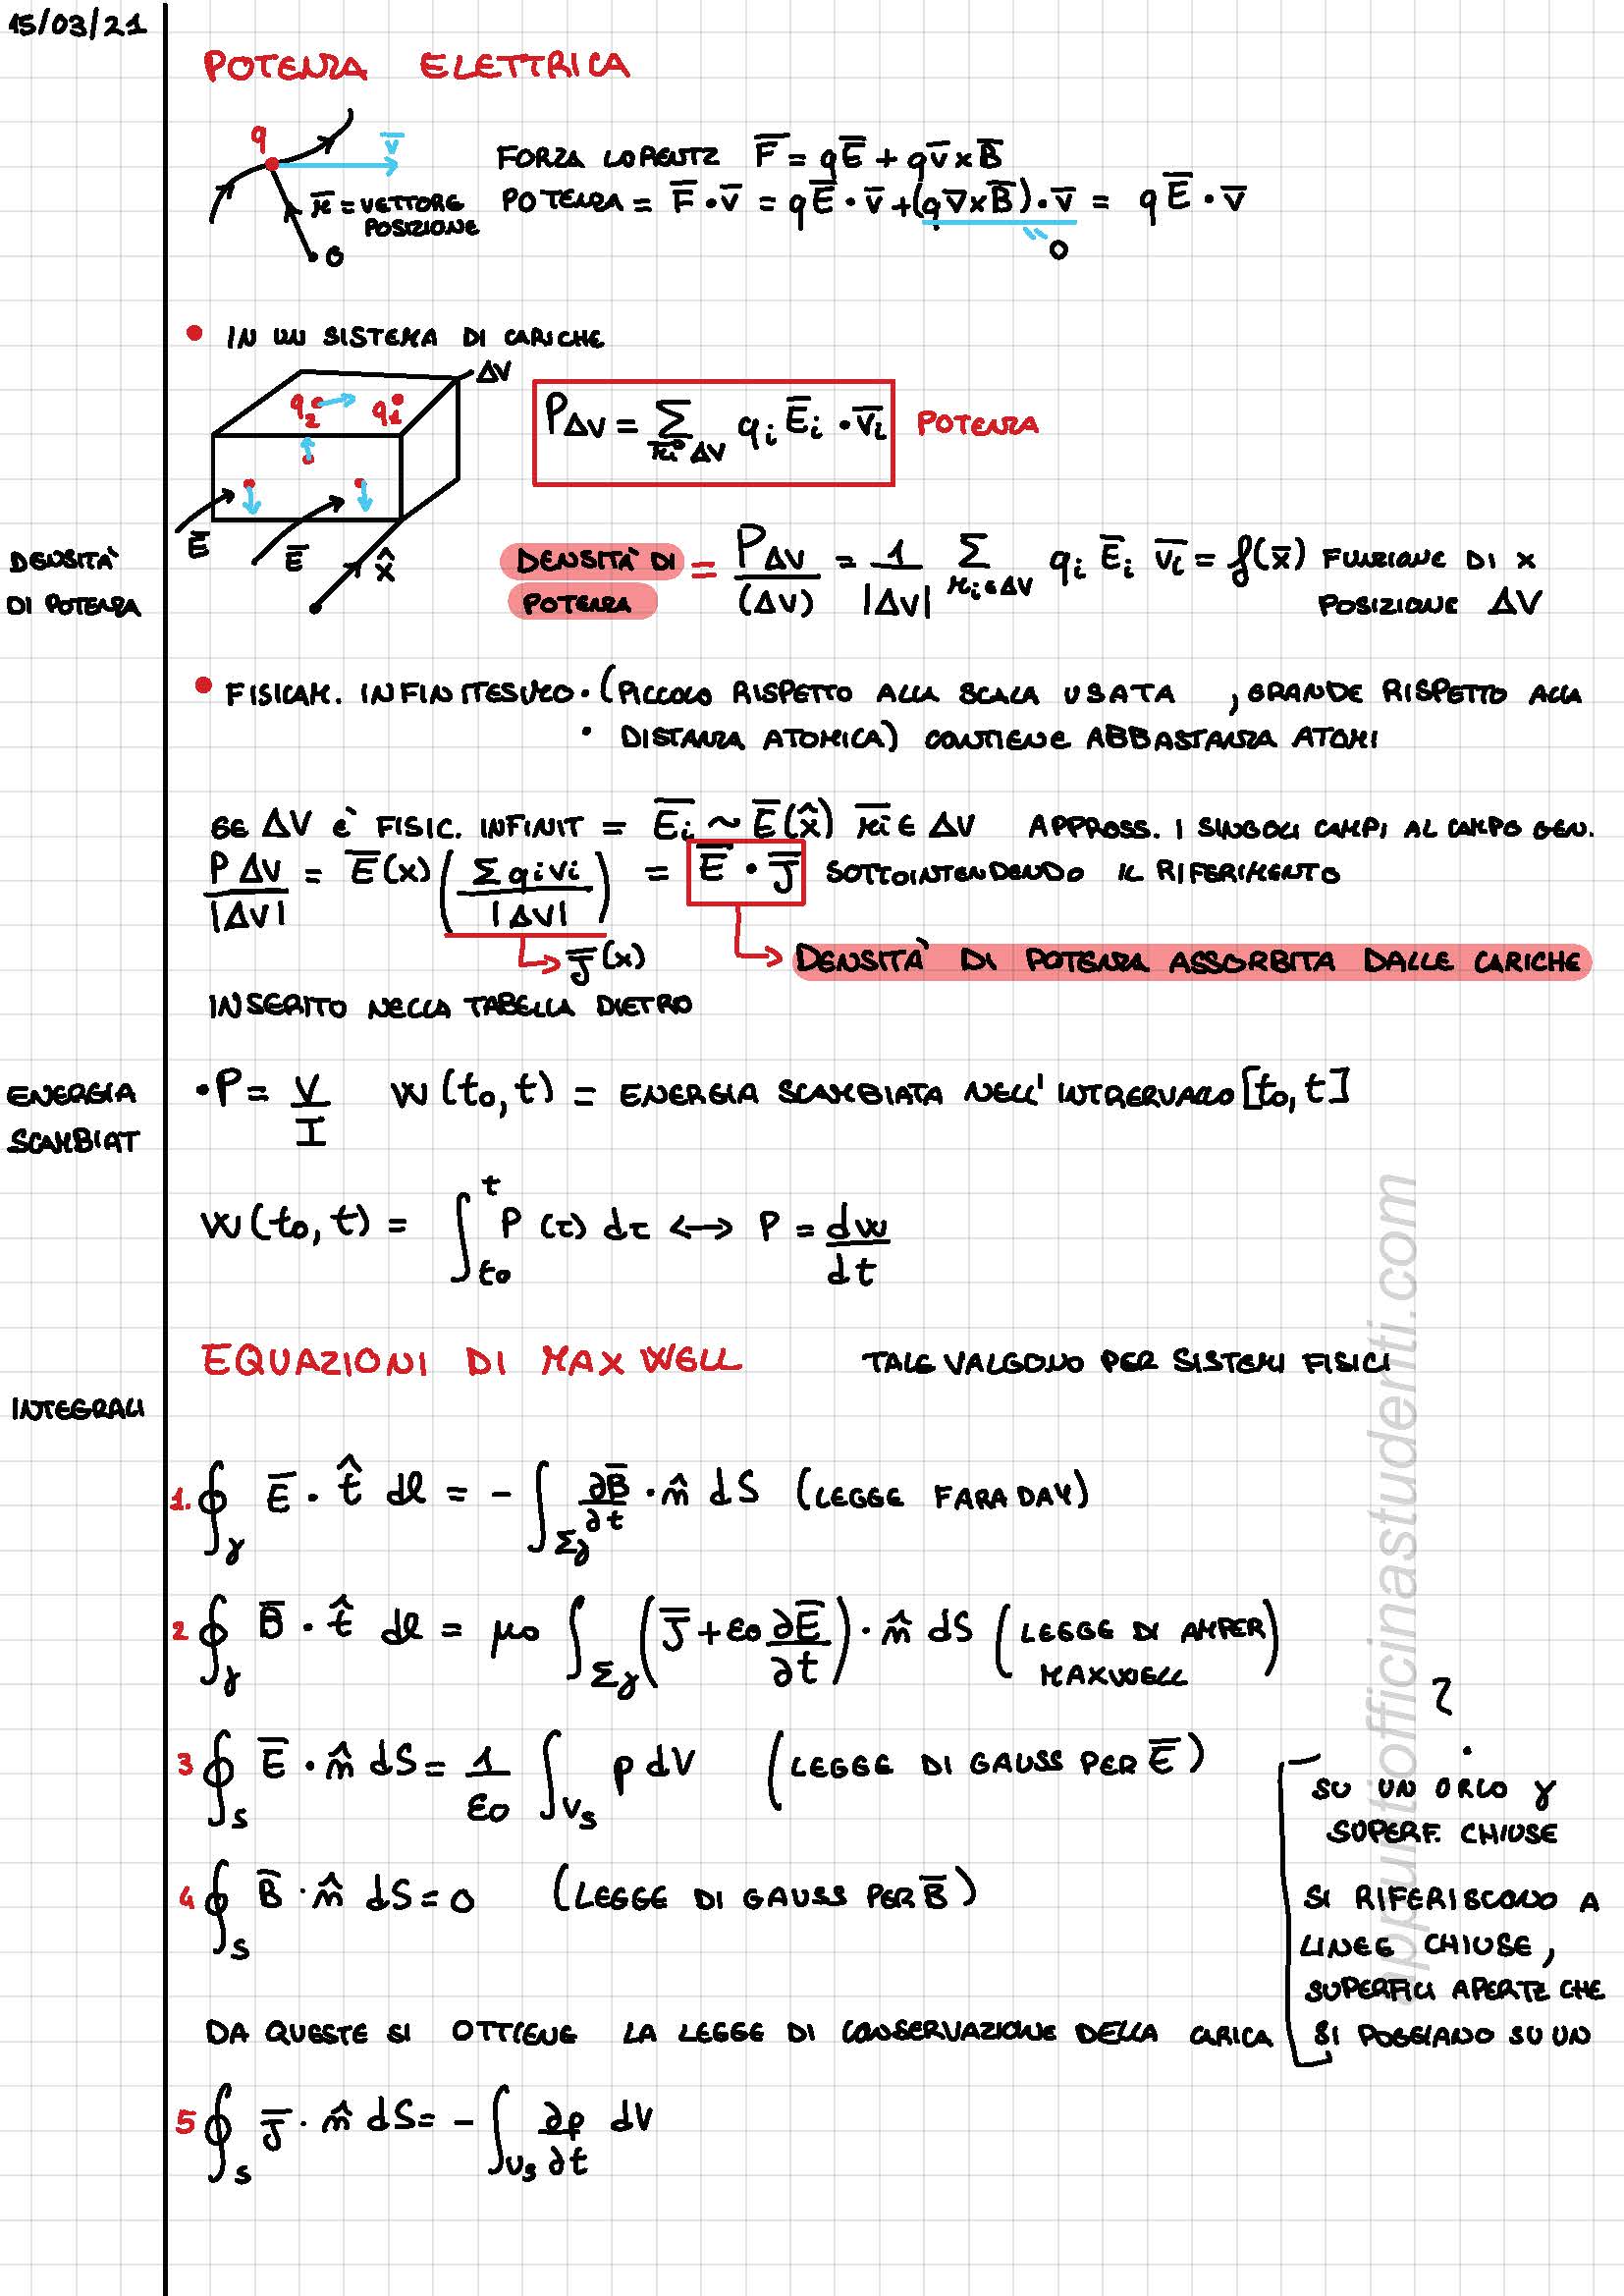 15/03/21
POTENZA ELETTRICA
q
v̅
r̅ = VETTORE
POSIZIONE
O
FORZA LORENTZ F̅ = qE̅ + qv̅ × B̅
POTENZA = F̅ · v̅ = qE̅ · v̅ + (q v̅ × B̅) · v̅ = q E̅ · v̅
0
• IN UN SISTEMA DI CARICHE
ΔV
q₂ q₁
E̅ E̅ x̂
P_ΔV = Σ_{r̅i ΔV} qᵢ E̅ᵢ · v̅ᵢ POTENZA
DENSITÀ
DI POTENZA
DENSITÀ DI POTENZA = P_ΔV / (ΔV) = 1/|ΔV| Σ_{rᵢ∈ΔV} qᵢ E̅ᵢ v̅ᵢ = f(x̅) FUNZIONE DI X
POSIZIONE ΔV
• FISICAM. INFINITESIMO · (PICCOLO RISPETTO ALLA SCALA USATA , GRANDE RISPETTO ALLA
· DISTANZA ATOMICA) CONTIENE ABBASTANZA ATOMI
SE ΔV È FISIC. INFINIT = E̅ᵢ ~ E̅(x̂) r̅i ∈ ΔV APPROSS. I SINGOLI CAMPI AL CAMPO GEN.
P ΔV / |ΔV| = E̅(x) (Σ qi vi / |ΔV|) = E̅ · J̅ SOTTOINTENDENDO IL RIFERIMENTO
J̅(x)
DENSITÀ DI POTENZA ASSORBITA DALLE CARICHE
INSERITO NELLA TABELLA DIETRO
ENERGIA
SCAMBIAT
· P = V/I W(t₀, t) = ENERGIA SCAMBIATA NELL' INTRERVALLO [t₀, t]
W(t₀, t) = ∫_{t₀}^{t} P (τ) dτ ↔ P = dw/dt
EQUAZIONI DI MAXWELL TALE VALGONO PER SISTEMI FISICI
INTEGRALI
1. ∮_γ E̅ · t̂ dl = - ∫_{Σγ} ∂B̅/∂t · n̂ dS (LEGGE FARADAY)
2 ∮_γ B̅ · t̂ dl = μ₀ ∫_{Σγ} (J̅ + ε₀ ∂E̅/∂t) · n̂ dS (LEGGE DI AMPER
MAXWELL)
?
3 ∮_S E̅ · n̂ dS = 1/ε₀ ∫_{Vs} ρ dV (LEGGE DI GAUSS PER E̅)
SU UN ORLO γ
SUPERF. CHIUSE
4 ∮_S B̅ · n̂ dS = 0 (LEGGE DI GAUSS PER B̅)
SI RIFERISCONO A
LINEE CHIUSE,
SUPERFICI APERTE CHE
SI POGGIANO SU UN
DA QUESTE SI OTTIENE LA LEGGE DI CONSERVAZIONE DELLA CARICA
5 ∮_S J̅ · n̂ dS = - ∫_{Vs} ∂ρ/∂t dV
appuntiofficinastudenti.com